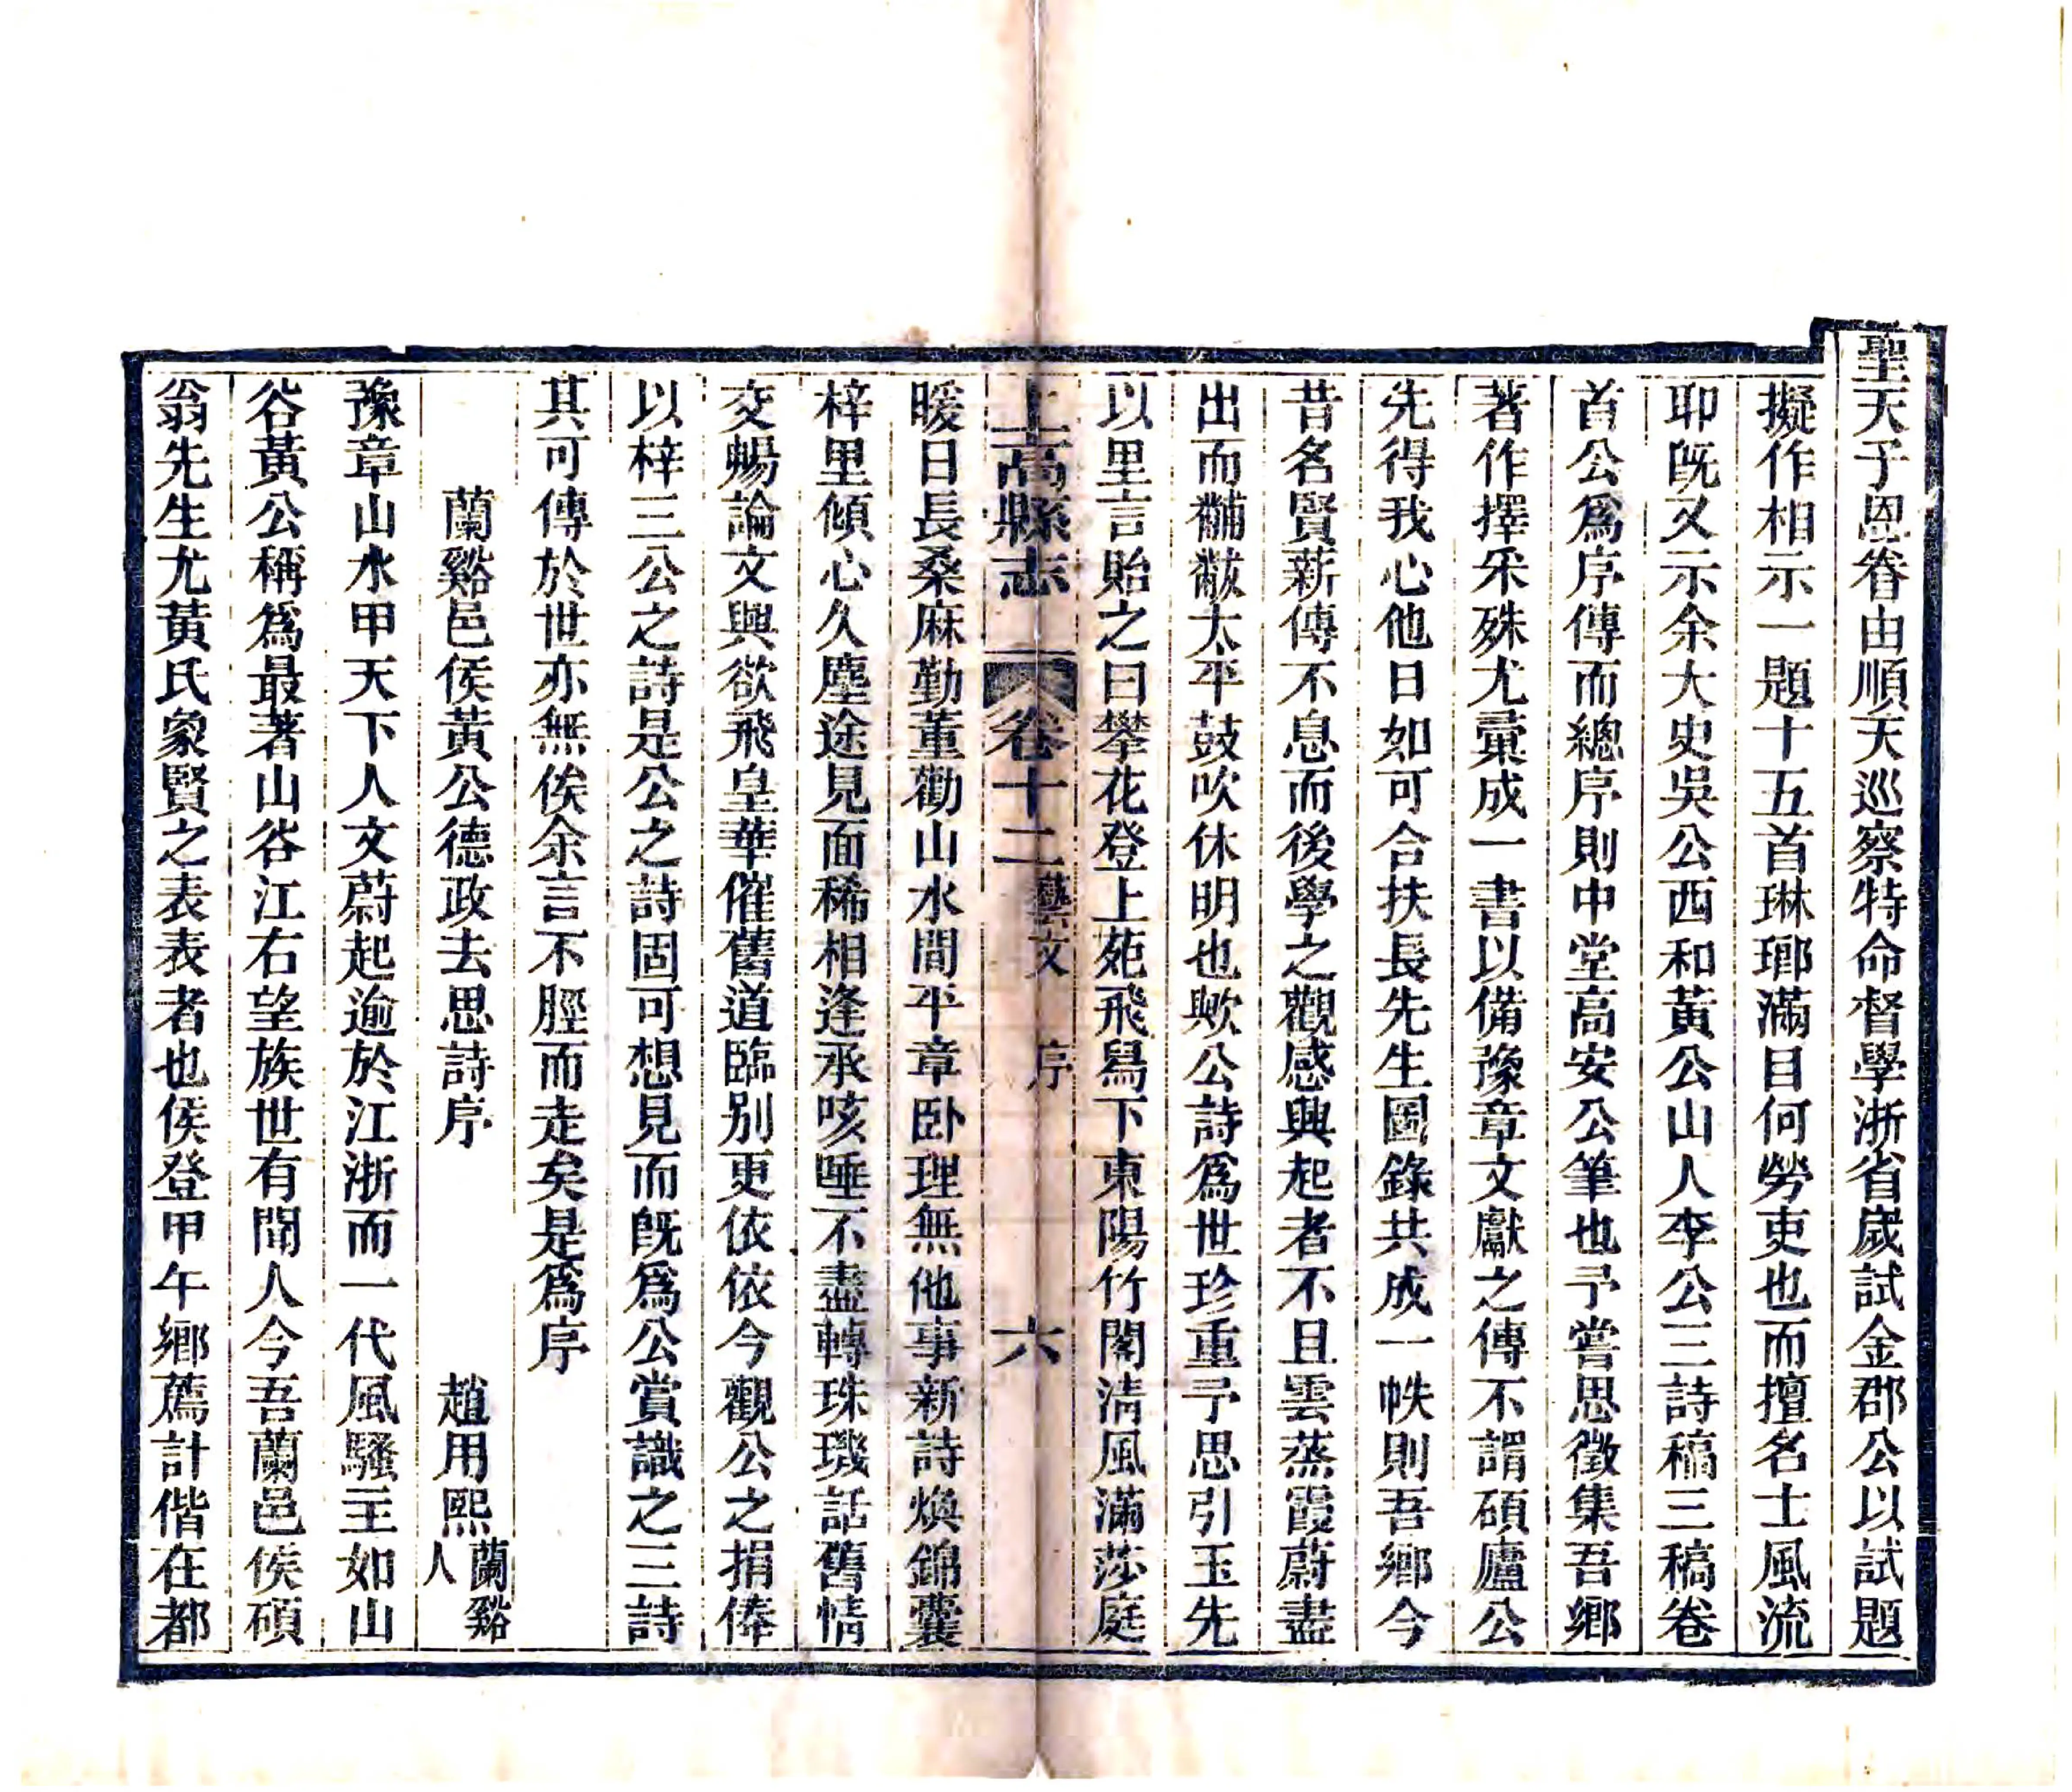 聖天子恩眷由順天巡察特命督學浙省歲試金郡公以試題
擬作相示一題十五首琳瑯滿目何勞吏也而擅名士風流
耶既又示余大史吳公西和黃公山人李公三詩稿三稿卷
首公爲序傳而總序則中堂高安公筆也予嘗思徵集吾鄉
著作擇采殊尤彙成一書以備豫章文獻之傳不謂碩廬公
先得我心他日如可合扶長先生圖錄共成一帙則吾鄉今
昔名賢薪傳不息而後學之觀感興起者不且雲蒸霞蔚盡
出而黼黻太平鼓吹休明也歟公詩爲世珍重予思引玉先
以里言貽之曰攀花登上苑飛舄下東陽竹閣清風滿莎庭
上高縣志 卷十二 藝文 序 六
暖日長桑麻勤董勸山水間平章卧理無他事新詩煥錦囊
梓里傾心久塵途見面稀相逢承咳唾不盡轉珠璣話舊情
交暢論文興欲飛皇華催舊道臨別更依依今觀公之捐俸
以梓三公之詩是公之詩固可想見而既爲公賞識之三詩
其可傳於世亦無俟余言不脛而走矣是爲序
蘭谿邑侯黃公德政去思詩序 趙用熙 蘭谿人
豫章山水甲天下人文蔚起逾於江浙而一代風騷主如山
谷黃公稱爲最著山谷江右望族世有聞人今吾蘭邑侯碩
翁先生尤黃氏象賢之表表者也侯登甲午鄉薦計偕在都